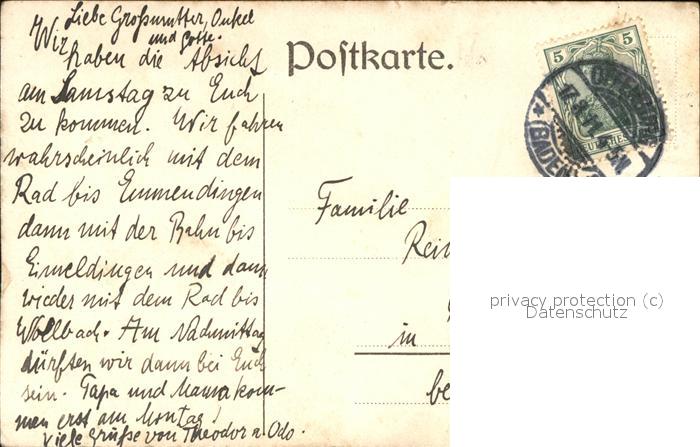 Liebe Großmutter, Onkel
und Gotte.
Wir
haben die Absicht
am Samstag zu Euch
zu kommen. Wir fahren
wahrscheinlich mit dem
Rad bis Emmendingen
dann mit der Bahn bis
Eimeldingen und dann
wieder mit dem Rad bis
Wollbach. Am Nachmittag
dürften wir dann bei Euch
sein. Papa und Mama kom-
men erst am Montag!
Viele Grüße von Theodor u. Odo.
Postkarte.
5 5
OFFENBURG
(BADEN)
Familie
Rei
in
be
privacy protection (c)
Datenschutz